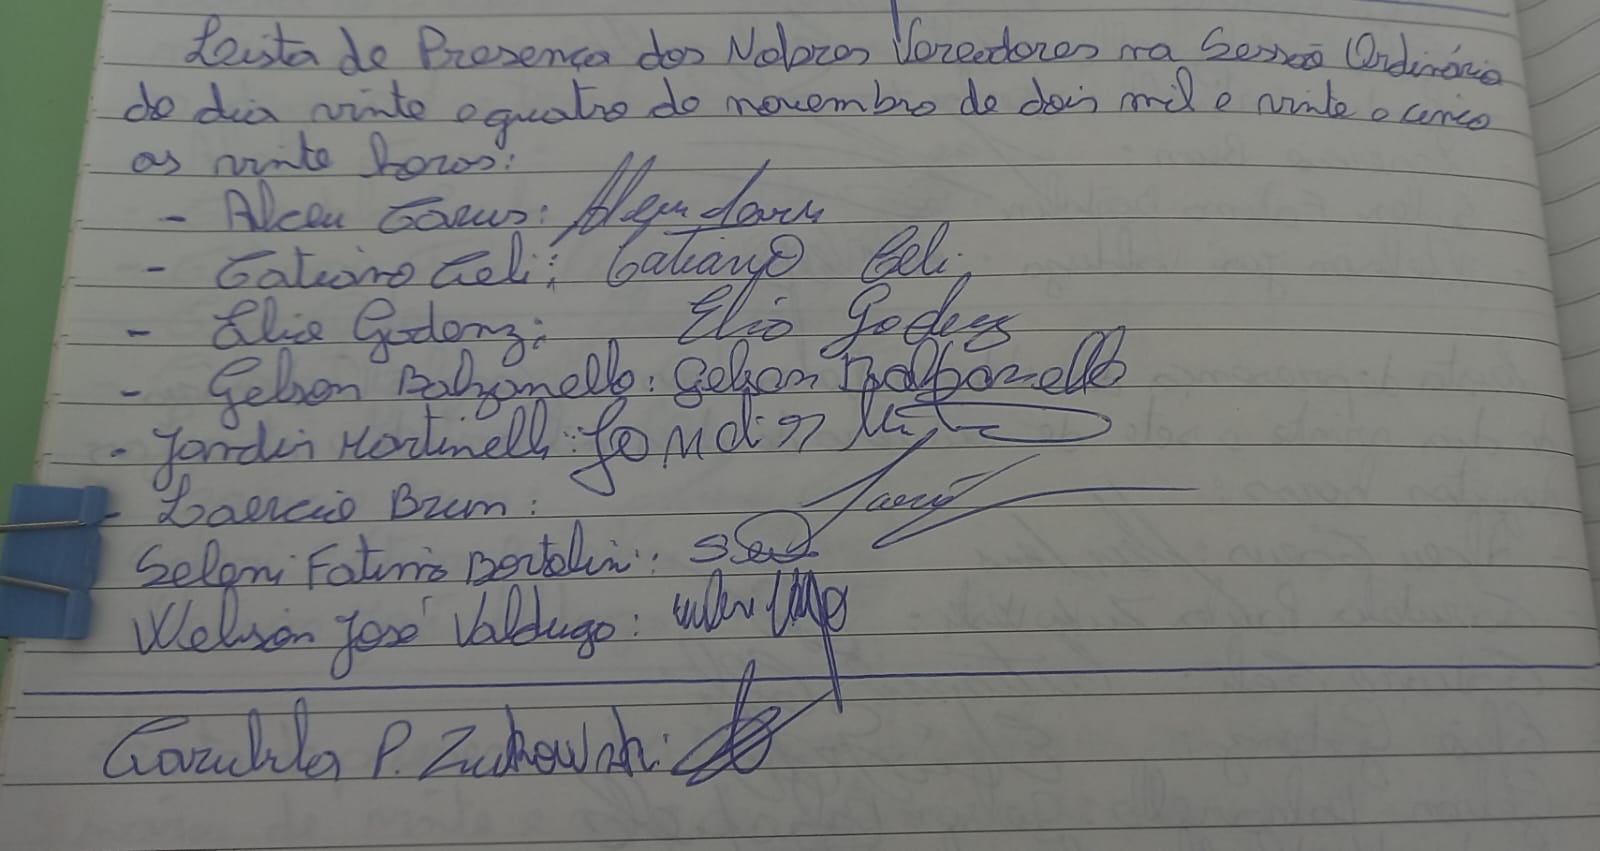 Leista de Presença dos Nobres Vereadores na Sessão Ordinária
do dia vinte e quatro de novembro de dois mil e vinte e cinco
as vinte horas:
- Alceu Garus:
- Catiano Celi: Catiano Celi
- Elio Godenz: Elio Godenz
- Gelson Balzanello: Gelson Balbonello
- Jandir Martinelli: Jandir
- Laercio Brum: Laercio
Seleni Fatima Bertolin:
Welison José Valdugo:
P. Zukowski: